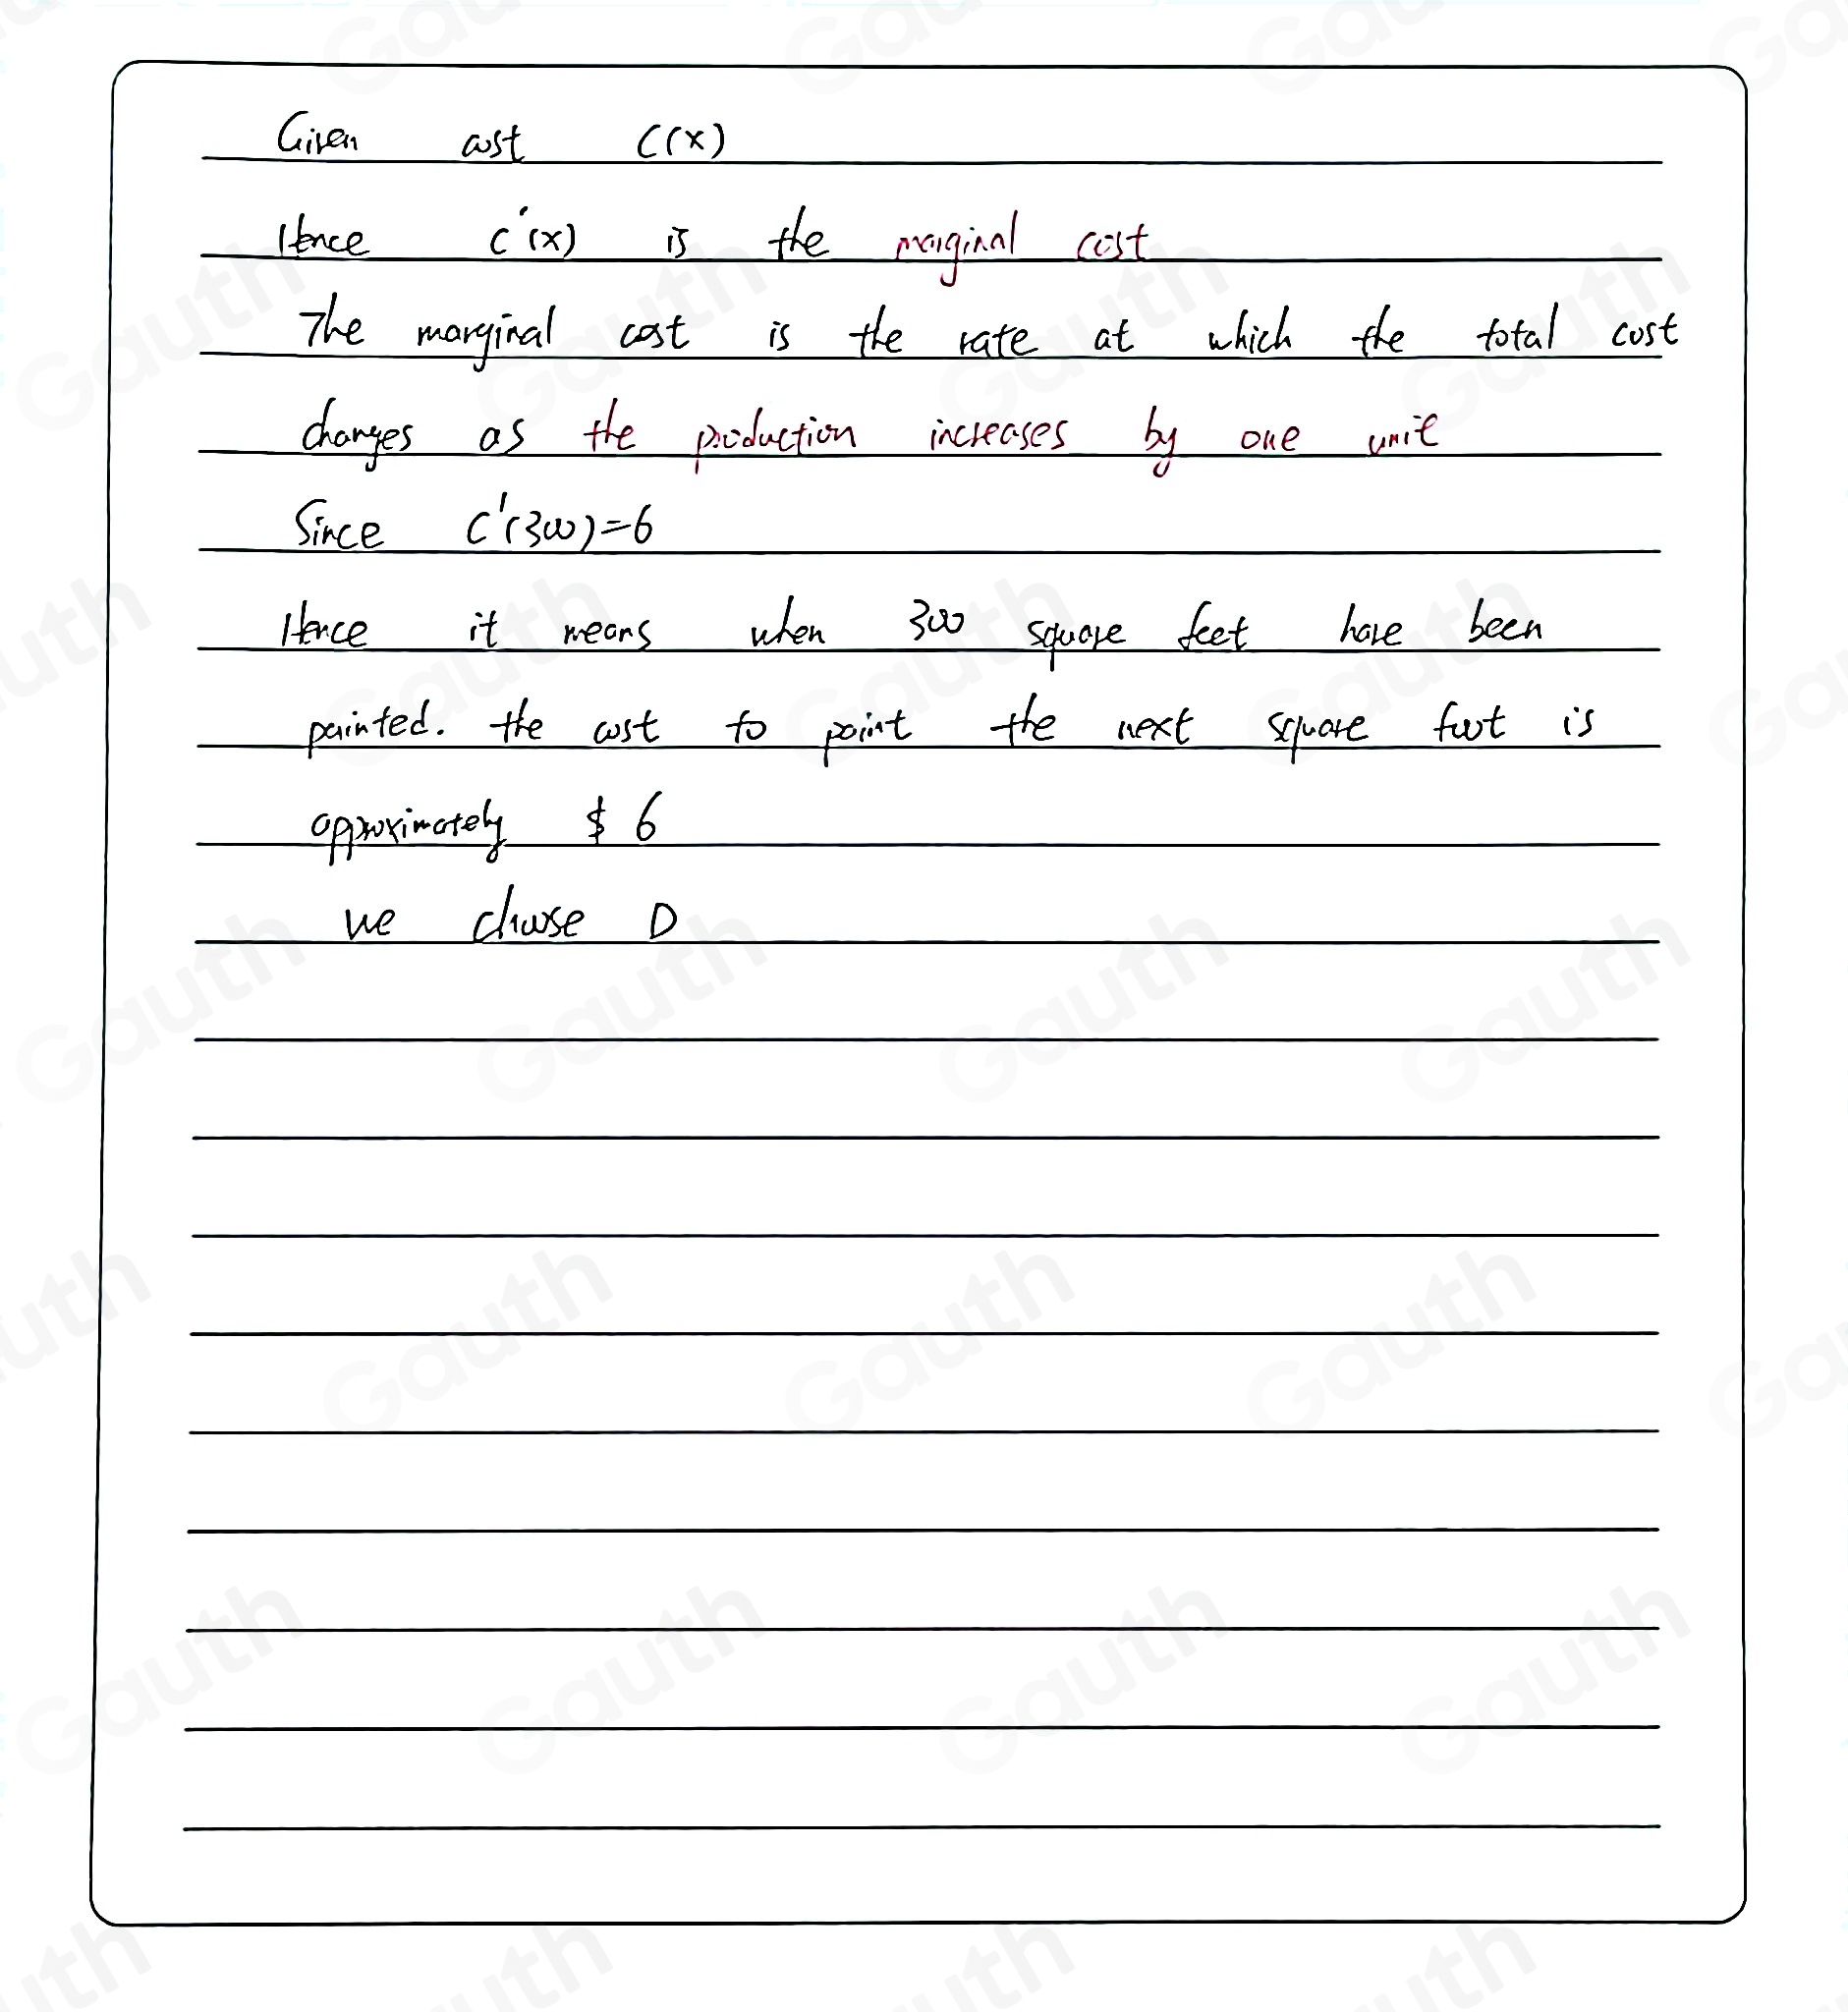 Given cost C(x)
Hence C'(x) is the marginal cost
The marginal cost is the rate at which the total cost
changes as the production increases by one unit
Since C'(300)=6
Hence it means when 300 square feet have been
painted. the cost to paint the next square foot is
approximately $ 6
we choose D